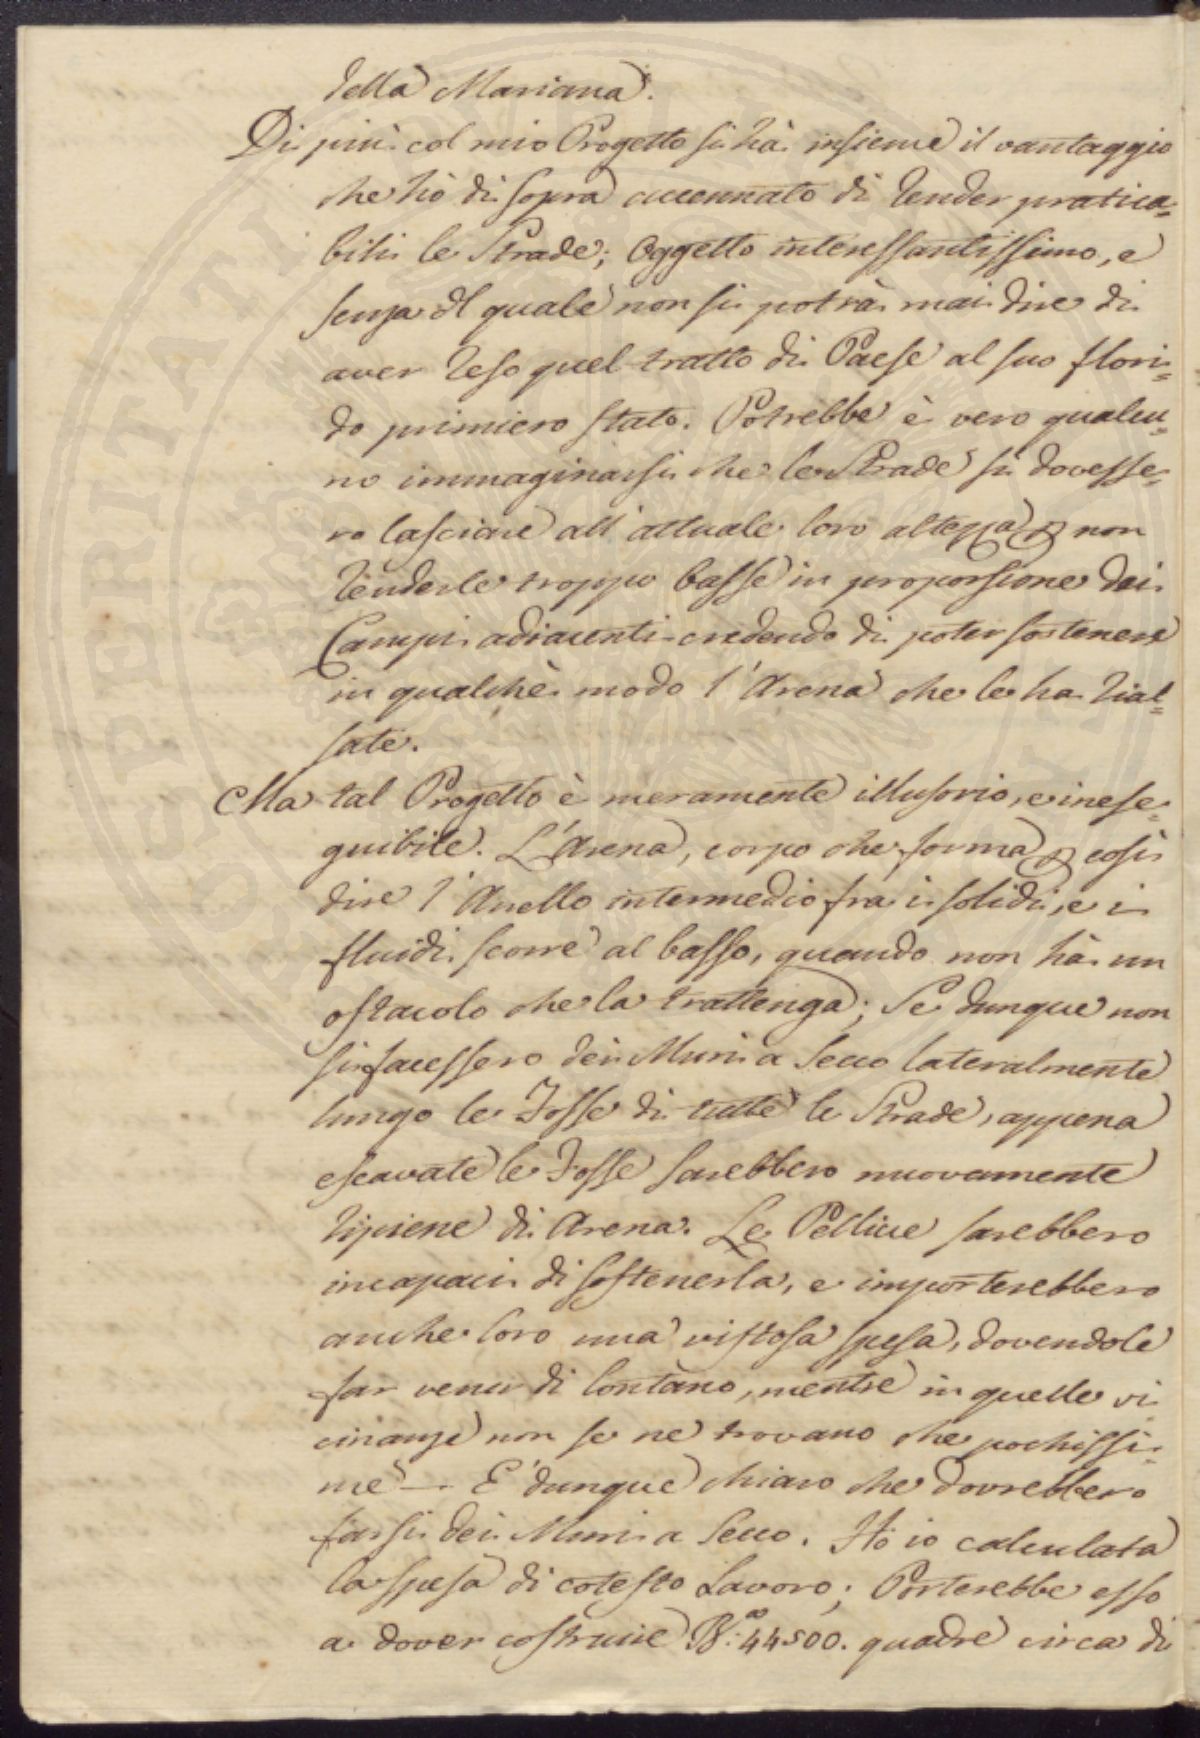 della Mariana.
Di più col mio Progetto si hà insieme il vantaggio
che hò di sopra accennato di render pratica=
bili le Strade; Oggetto interessantissimo, e
senza il quale non si potrà mai dire di
aver reso quel tratto di Paese al suo flori=
do primiero stato. Potrebbe è vero qualcu=
no immaginarsi che le Strade si dovesse=
ro lasciare all'attuale loro altezza p non
renderle troppo basse in proporsione dei
Campi adiacenti credendo di poter sostenere
in qualche modo l'Arena che le ha rial=
sate.
Ma tal Progetto è meramente illusorio, e inese=
guibile. L'Arena, corpo che forma p così
dire l'Anello intermedio fra i solidi, e i
fluidi scorre al basso, quando non hà un
ostacolo che la trattenga; Se dunque non
si facessero dei Muri a Secco lateralmente
lungo le Fosse di tutte le Strade, appena
escavate le Fosse sarebbero nuovamente
ripiene di Arena. Le Pellicce sarebbero
incapaci di sostenerla, e importerebbero
anche loro una vistosa spesa, dovendole
far venir di lontano, mentre in quelle vi=
cinanze non se ne trovano che pochissi=
me — E' dunque chiaro che dovrebbero
farsi dei Muri a Secco. Hò io calculata
la spesa di cotesto Lavoro; Porterebbe esso
a dover costruire B.ª 44500. quadre circa di